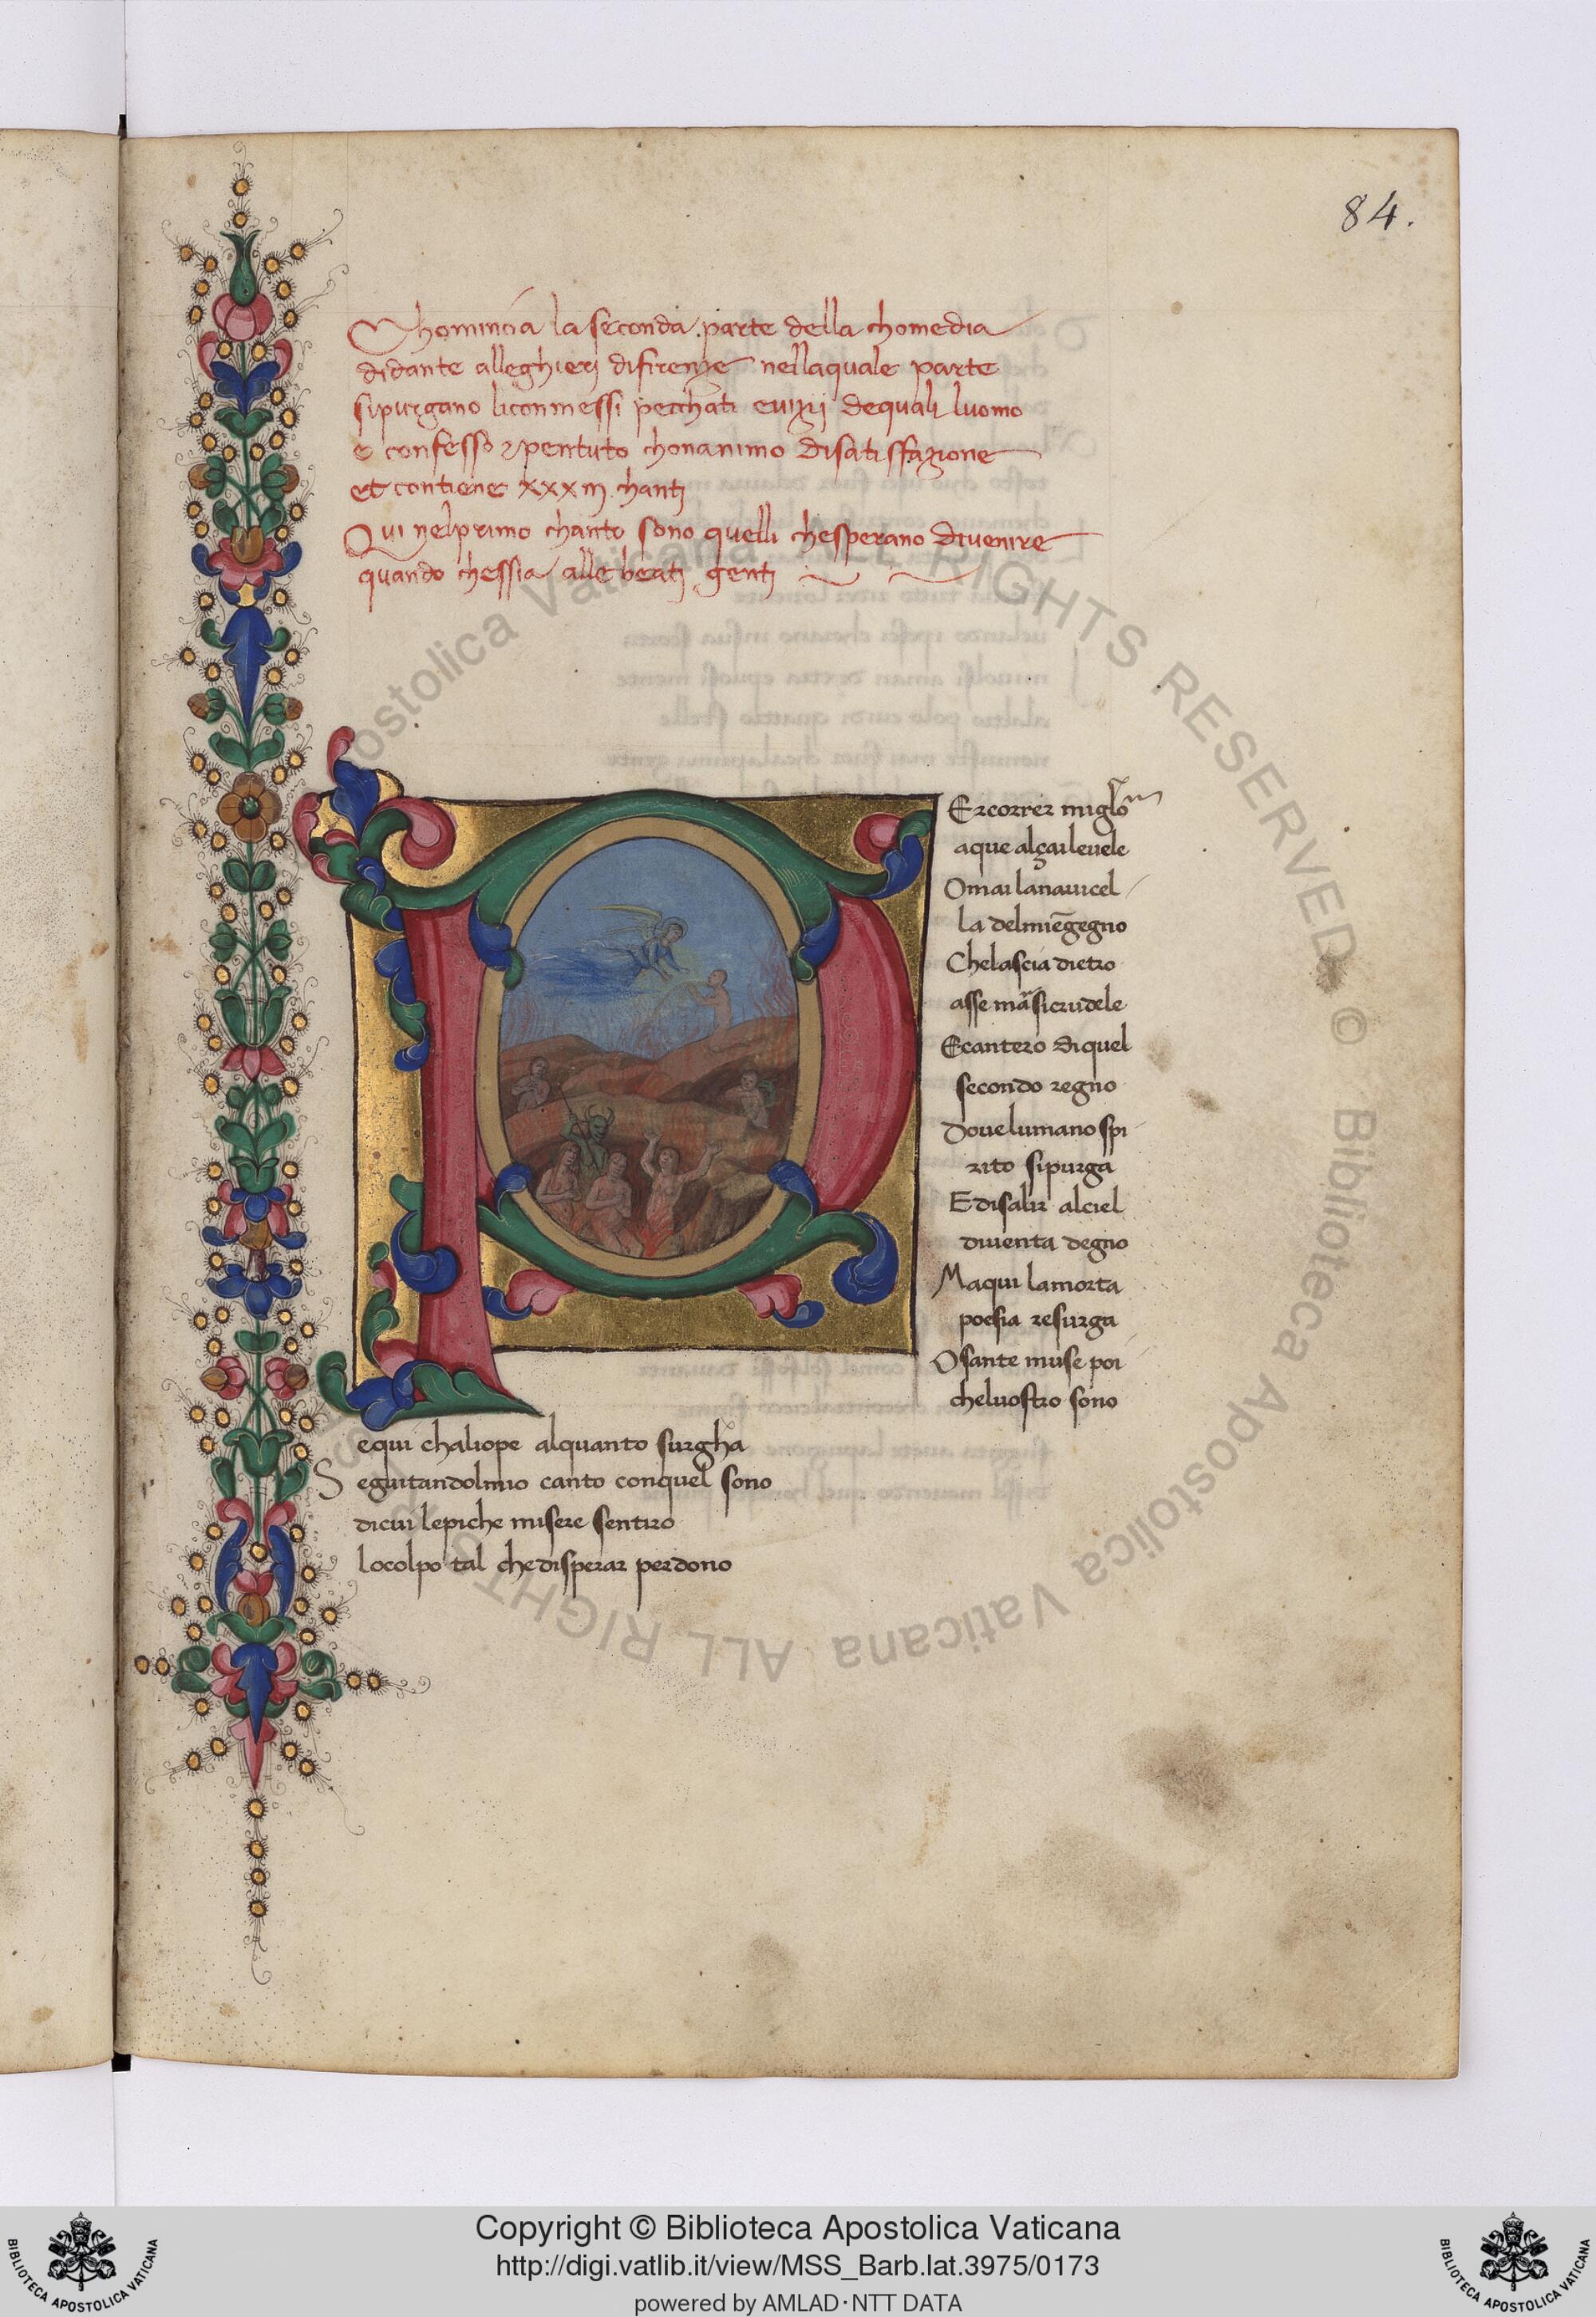 84.
Chomincia la seconda parte della chomedia
didante alleghierj difirenze nellaquale parte
sipurgano liconmessi pecchati euizij dequali luomo
e confesso & pentuto chonanimo disatisfazione
et contiene xxxiij chantj
Qui nelprimo chanto sono quelli chesperano diuenire
quando chessia alle beatj gentj
P
Ercorrer miglor
aque alçaileuele
Omai lanauicel
la delmiēgegno
Chelascia dietro
asse mar sicrudele
Ecantero diquel
secondo regno
doue lumano spi
rito sipurga
E disalir alciel
diuenta degno
Maqui lamorta
poesia resurga
Osante muse poi
cheluostro sono
equi chaliope alquanto surgha
Seguitandolmio canto conquel sono
dicui lepiche misere sentiro
locolpo tal chedisperar perdono
Biblioteca Apostolica Vaticana ALL RIGHTS RESERVED ©
Copyright © Biblioteca Apostolica Vaticana
http://digi.vatlib.it/view/MSS_Barb.lat.3975/0173
powered by AMLAD·NTT DATA
BIBLIOTECA APOSTOLICA VATICANA
BIBLIOTECA APOSTOLICA VATICANA